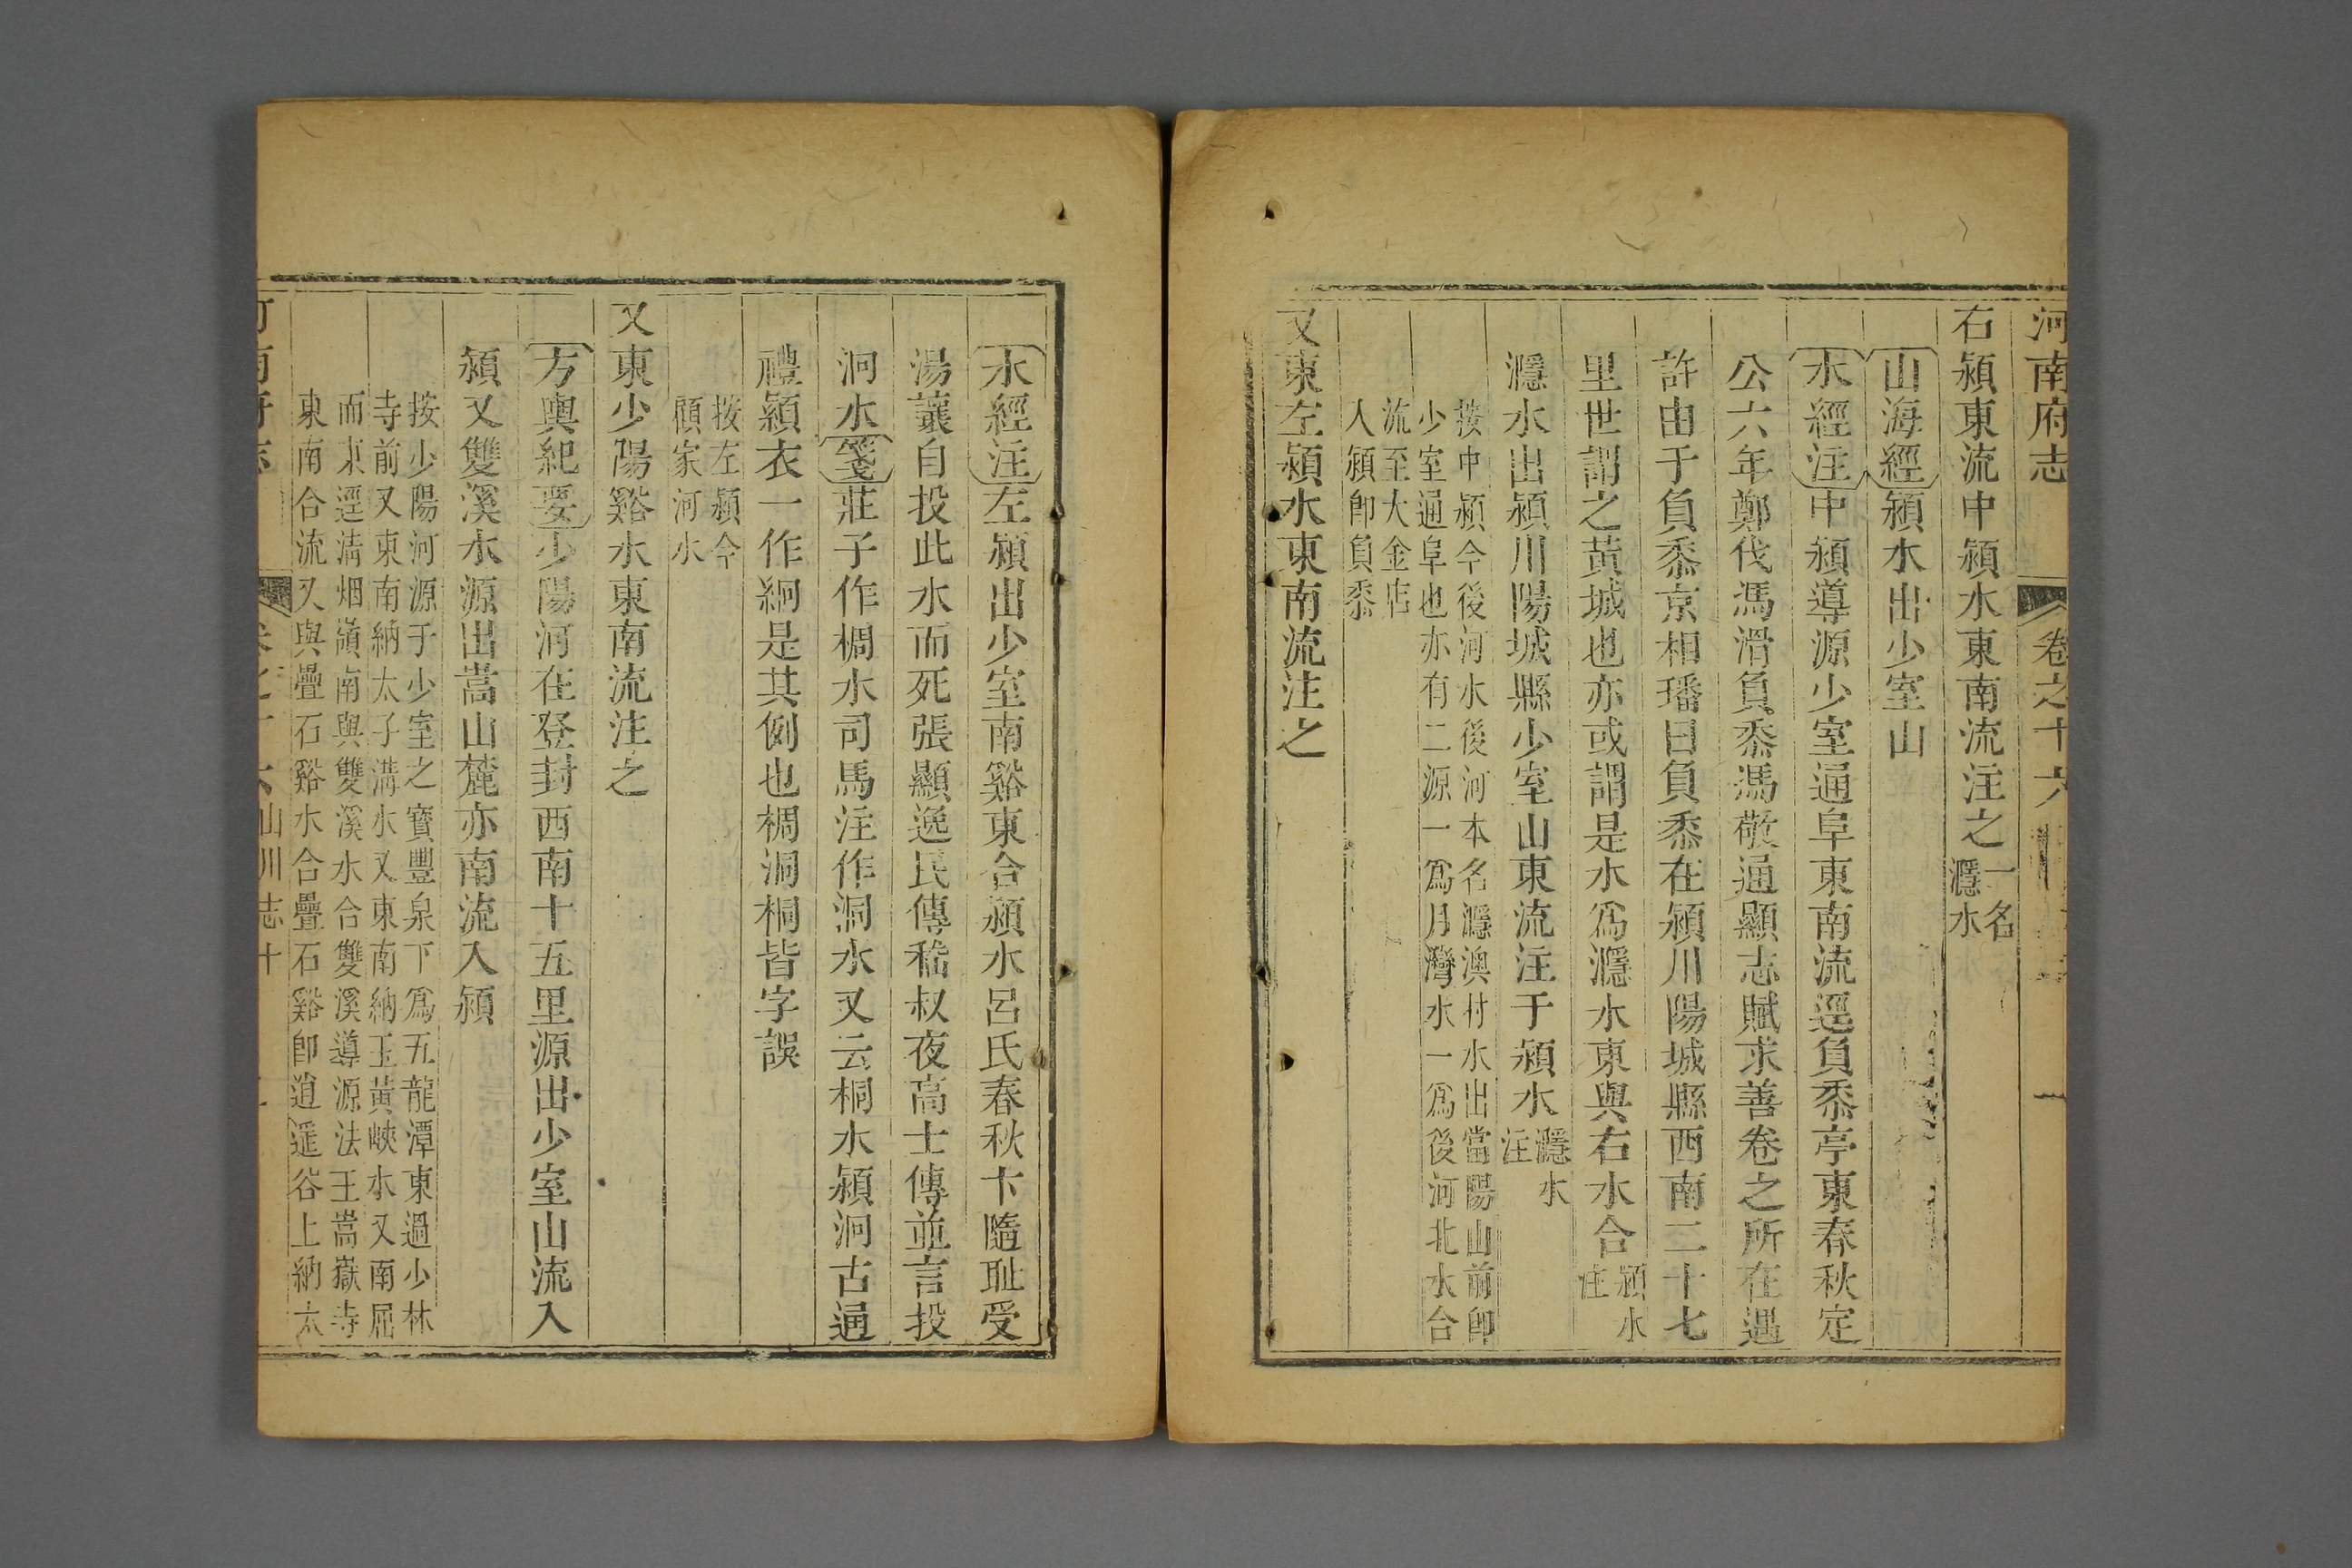 河南府志 卷之十六 一
右潁東流中潁水東南流注之一名
㶏水
山海經潁水出少室山
水經注中潁導源少室通阜東南流逕負黍亭東春秋定
公六年鄭伐馮滑負黍馮敬通顯志賦求善卷之所在遇
許由于負黍京相璠曰負黍在潁川陽城縣西南二十七
里世謂之黃城也亦或謂是水為㶏水東與右水合潁水
注
㶏水出潁川陽城縣少室山東流注于潁水㶏水
注
按中潁今後河水後河本名㶏澳村水出當陽山前卽
少室通阜也亦有二源一為月灣水一為後河北水合
流至大金店
入潁卽負黍
又東左潁水東南流注之
水經注左潁出少室南谿東合潁水呂氏春秋卞隨耻受
湯讓自投此水而死張顯逸民傳嵇叔夜高士傳並言投
泂水箋莊子作椆水司馬注作洞水又云桐水潁泂古通
禮潁衣一作絅是其例也椆洞桐皆字誤
按左潁今
顧家河水
又東少陽谿水東南流注之
方輿紀要少陽河在登封西南十五里源出少室山流入
潁又雙溪水源出嵩山麓亦南流入潁
按少陽河源于少室之寶豐泉下為五龍潭東過少林
寺前又東南納太子溝水又東南納玉黃峽水又南屈
而東逕淸烟嶺南與雙溪水合雙溪導源法王嵩嶽寺
東南合流又與疊石谿水合疊石谿卽逍遥谷上納太
山川志十